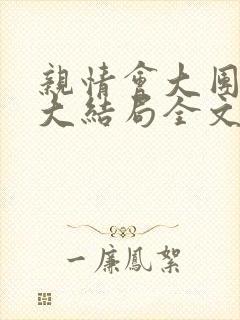 親情會大團
大結局全文
一廉鳳絮